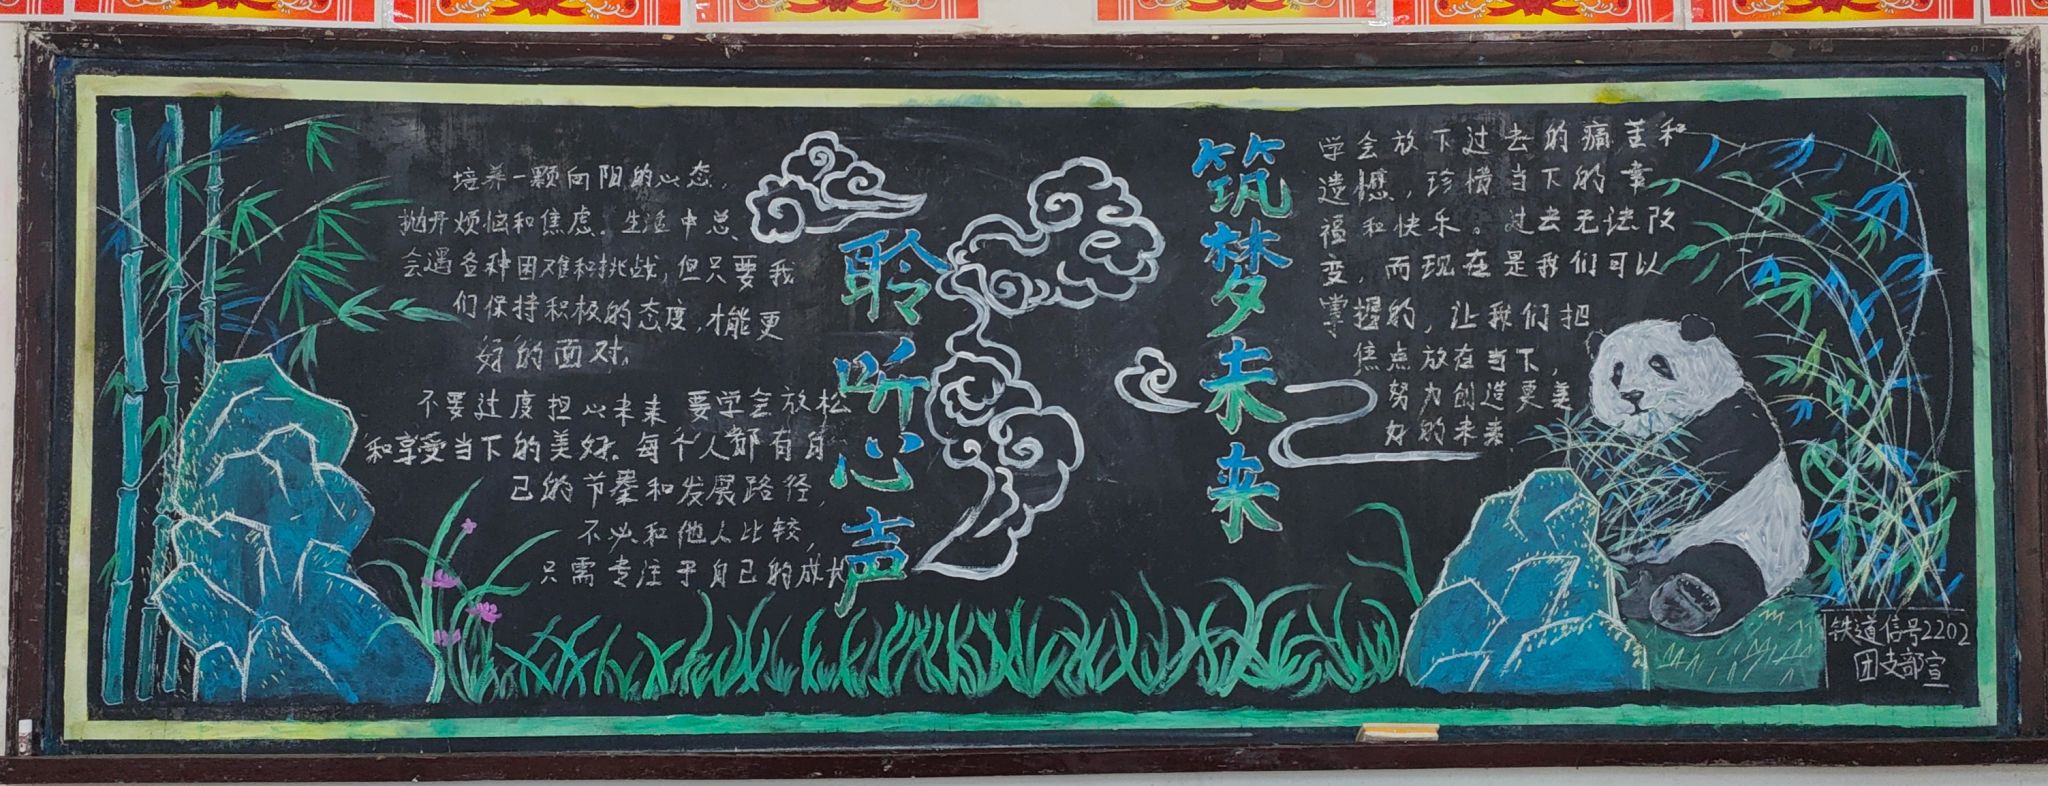 培养一颗向阳的心态,
抛开烦恼和焦虑。生活中总
会遇各种困难和挑战,但只要我
们保持积极的态度,才能更
好的面对。
不要过度担心未来 要学会放松
和享受当下的美好。每个人都有自
己的节奏和发展路径,
不必和他人比较,
只需专注于自己的成长
聆听心声
筑梦未来
学会放下过去的痛苦和
遗憾,珍惜当下的幸
福和快乐。过去无法改
变,而现在是我们可以
掌握的,让我们把
焦点放在当下,
努力创造更美
好的未来
铁道信号2202
团支部宣